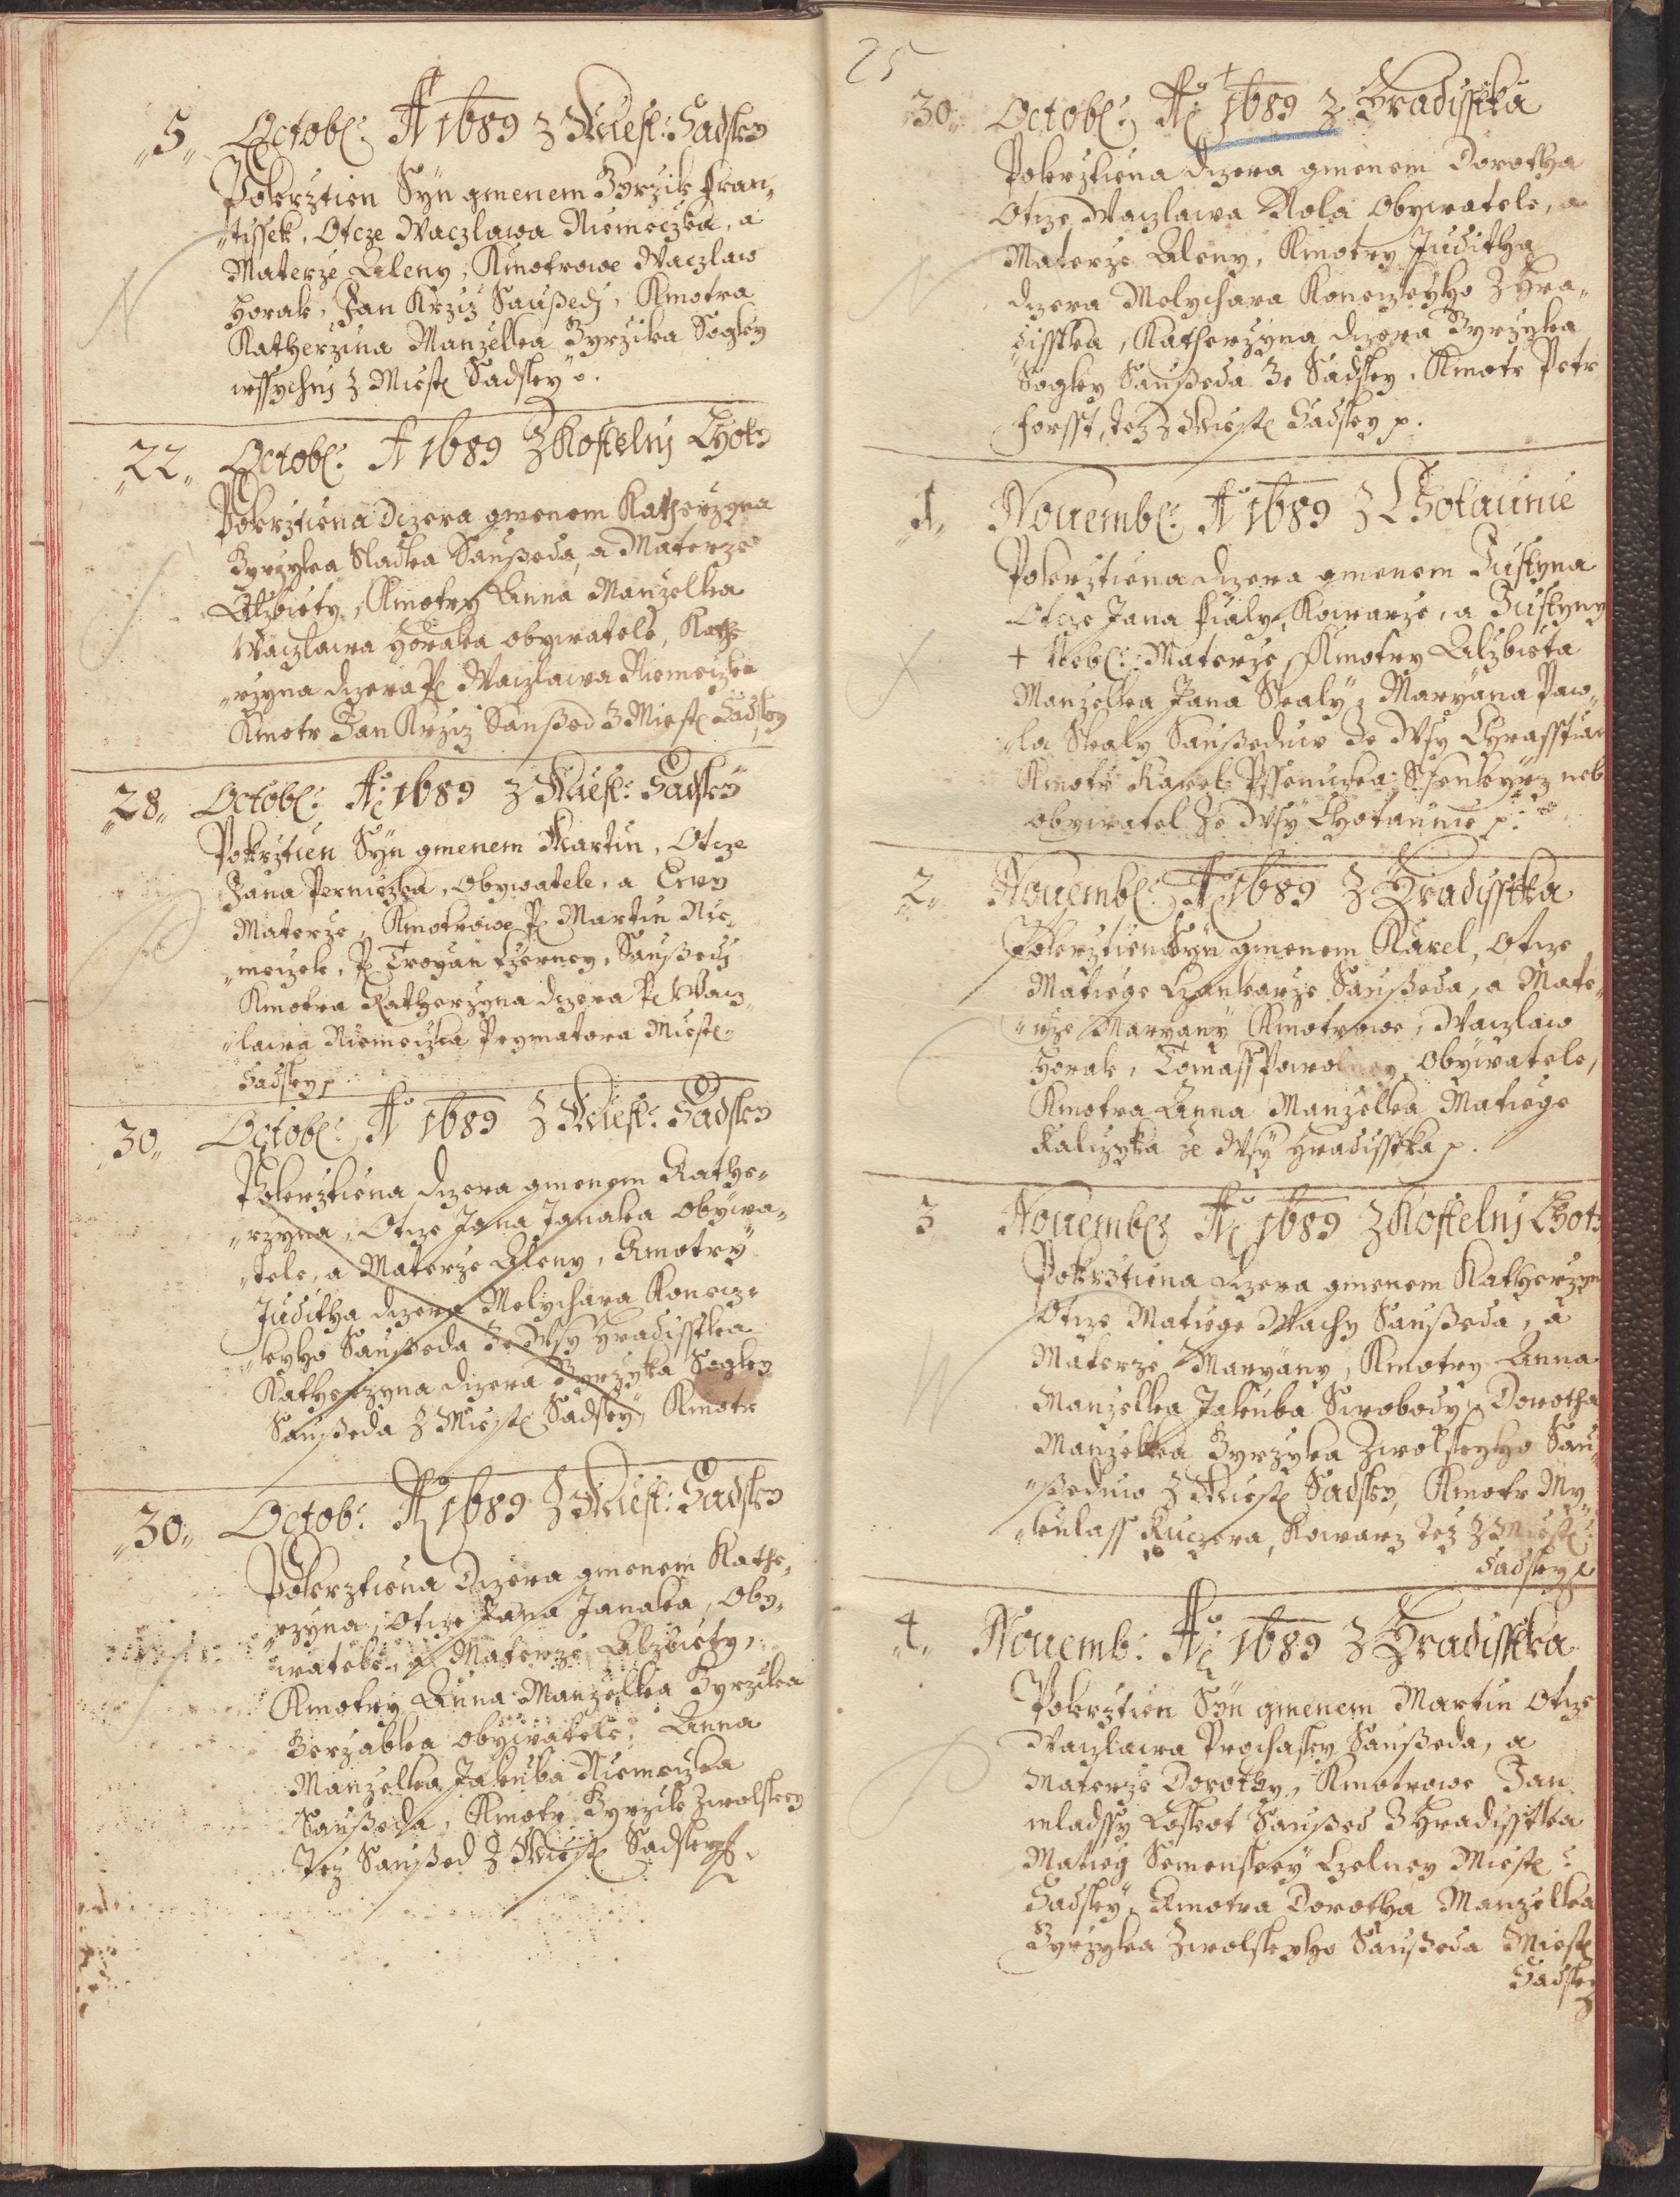 „5„ Octob: A 1689 z Miest: Sadsky
Pokrztien Syn gmenem Girzik Fran„
„tissek, Otcze Waczlawa Niemeczka, a
Materze Aleny, Kmotrowe Waczlaw
Horak, Jan Krziz Saußedj, Kmotra
Katherzina Manzelka Girzika Sogky
wssychnj z Miest Sadsky
„22„ Octob: A 1689 z Kostelnj Lhoty
Pokrztiena dczera gmenem Katherzyna
Girzyka Sladka Saußeda, a Materze
Alzbiety, Kmotry Anna Manzelka
Waczlawa Horaka obywatele, Kathe
„rzyna dczera P Waczlawa Niemeczka
Kmotr Jan Krziz Saußed z Miest Sadsky
„28„ Octob: Ao 1689 z Miest: Sadsky
Pokrztien Syn gmenem Martin, Otcze
Jana Perniczka, Obywatele, a Ewy
Materze, Kmotrowe P Martin Nie„
„meczek, P Troyan Czerney, Saußedj
Kmotra Katherzyna dczera P Wacz„
„lawa Niemeczka Prymatora Miest
Sadsky p
30„ Octob: Ao 1689 z Miest: Sadsky
Pokrztiena dczera gmenem Kathe„
„rzyna, Otcze Jana Janaka Obywa„
„tele, a Materze Aleny, Kmotry
Juditha dczera Melychara Konecz„
„kyho Saußeda ze Wsy Hradisstka
Katherzyna dczera Girzyka Sogky
Saußeda z Miest Sadsky, Kmotr
„30„ Octob: A 1689 z Miest: Sadsky
Pokrztiena Dczera gmenem Kathe„
„rzyna, Otcze Jana Janaka, Oby„
„watele, a Materze Alzbiety,
Kmotry Anna Manzelka Girzika
Gerzabka obywatele, Anna
Manzelka Jakuba Niemeczka
Saußeda, Kmotr Girzik Zwolskey
Tez Saußed z Miest Sadsky
25
„30„ Octob: A 1689 z Hradisstka
Pokrztiena dczera gmenem Dorotha
Otcze Waczlawa Kola Obywatele, a
Materze Aleny, Kmotry Juditha
dczera Melychara Koneczkyho z Hra„
„disstka, Katherzyna dczera Girzyka
Sogky Saußeda ze Sadsky, Kmotr Petr
Forsst, tez z Miest Sadsky p.
„1„ Nouemb: A 1689 z Chotaunie
Pokrztiena dczera gmenem Justyna
Otcze Jana Fialy, Kowarze, a Justyny
+ Neb: Materze, Kmotry Alzbieta
Manzelka Jana Skaly, Maryana Paw„
„la Skaly Saußeduw ze Wsy Chrasstian
Kmotr Karel Pssenicka Ssenkyrz neb
obywatel ze Wsy Chotaunie p.
„2„ Nouemb: A 1689 z Hradisstka
Pokrztien Syn gmenem Karel, Otcze
Matiege Czankarze Saußeda, a Mate„
„rze Maryany Kmotrowe, Waczlaw
Horak, Tomass Obywatele,
Kmotra Anna Manzelka Matiege
Kaliczyka ze Wsy Hradisstka p.
3 Nouemb A 1689 z Kostelnj Lhoty
Pokrztiena dczera gmenem Katherzyn
Otcze Matiege Machy Saußeda, a
Materze Maryany, Kmotry Anna
Manzelka Jakuba Swobody, Dorotha
Manzelka Girzyka Zwolskyho Sau„
„ßeduw z Miest Sadsky, Kmotr My„
„kulass Kuczera, Kowarz tez z Miest
Sadsky p
„4„ Nouemb: A 1689 z Hradisstka
Pokrztien Syn gmenem Martin Otcze
Waczlawa Prochasky Saußeda, a
Materze Dorothy, Kmotrowe Jan
mladssy Loskot Saußed z Hradisstka
Matieg Semenskey Czelney Miest
Sadsky, Kmotra Dorotha Manzelka
Girzyka Zwolskyho Saußeda Miest
Sadsky